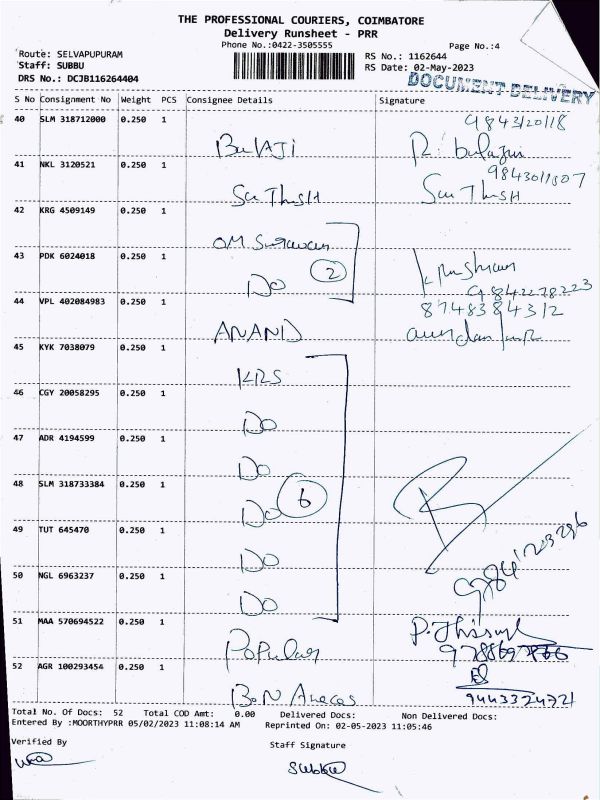 THE PROFESSIONAL COURIERS, COIMBATORE
Delivery Runsheet - PRR
Phone No.:0422-3505555
Page No.:4
Route: SELVAPUPURAM
Staff: SUBBU
DRS No.: DCJB116264404
RS No.: 1162644
RS Date: 02-May-2023
DOCUMENT DELIVERY
S No Consignment No Weight PCS Consignee Details Signature
40 SLM 318712000 0.250 1 BalAJI
41 NKL 3120521 0.250 1 SaThisH SaThisH
42 KRG 4509149 0.250 1 OM
43 PDK 6024018 0.250 1 Do 2
9842278223
44 VPL 402084983 0.250 1 ANAND 8748384312
45 KYK 7038079 0.250 1 KRS
46 CGY 20058295 0.250 1 Do
47 ADR 4194599 0.250 1 Do
48 SLM 318733384 0.250 1 Do 6
49 TUT 645470 0.250 1 Do
50 NGL 6963237 0.250 1 Do
51 MAA 570694522 0.250 1 Popular
52 AGR 100293454 0.250 1 9443324721
Total No. Of Docs: 52 Total COD Amt: 0.00 Delivered Docs: Non Delivered Docs:
Entered By :MOORTHYPRR 05/02/2023 11:08:14 AM Reprinted On: 02-05-2023 11:05:46
Verified By Staff Signature
Subbu